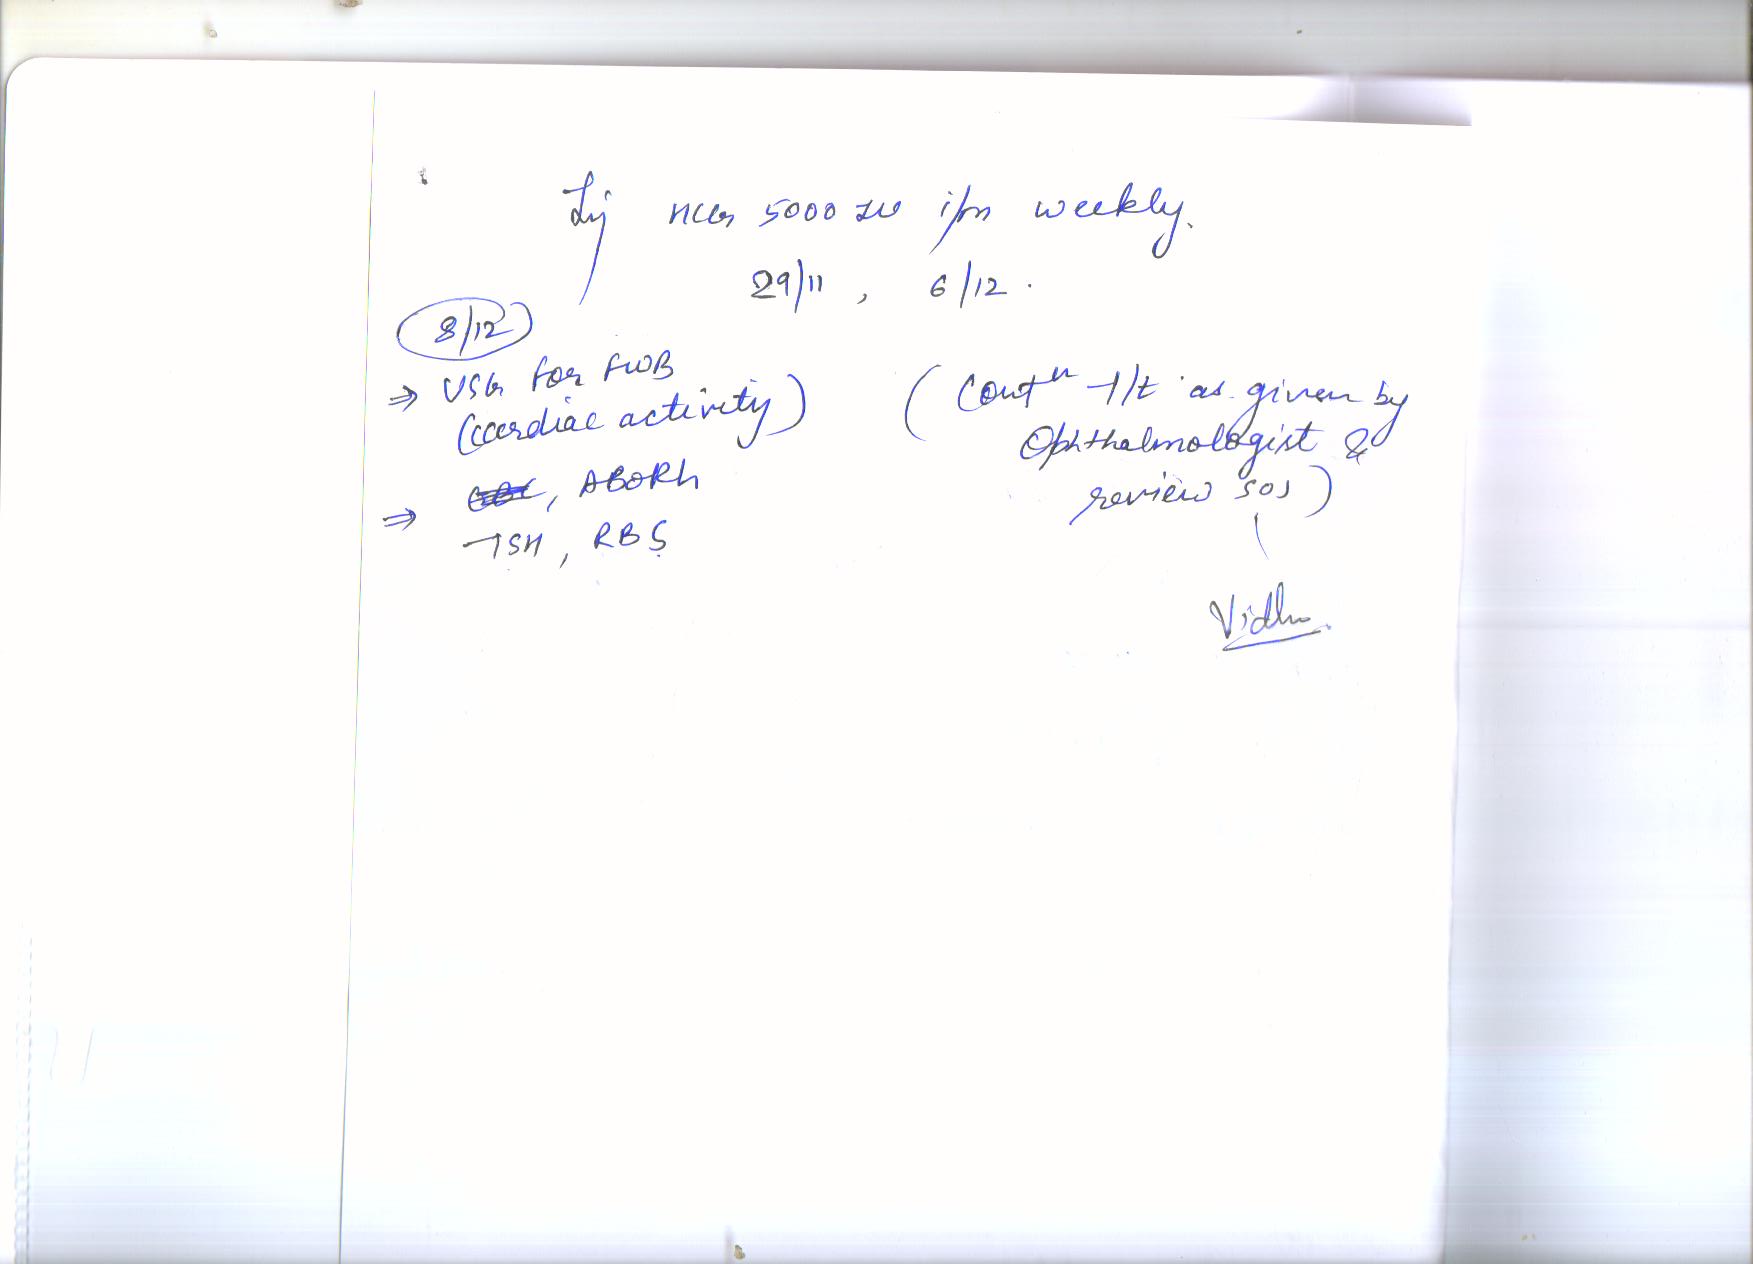 Inj HCG 5000 IU i/m weekly.
29/11, 6/12.
8/12
⇒ USG for FWB
(cardiac activity)
⇒ CBC, ABORh
TSH, RBS
(Contn t/t as given by
Ophthalmologist &
review sos)
Vidhu